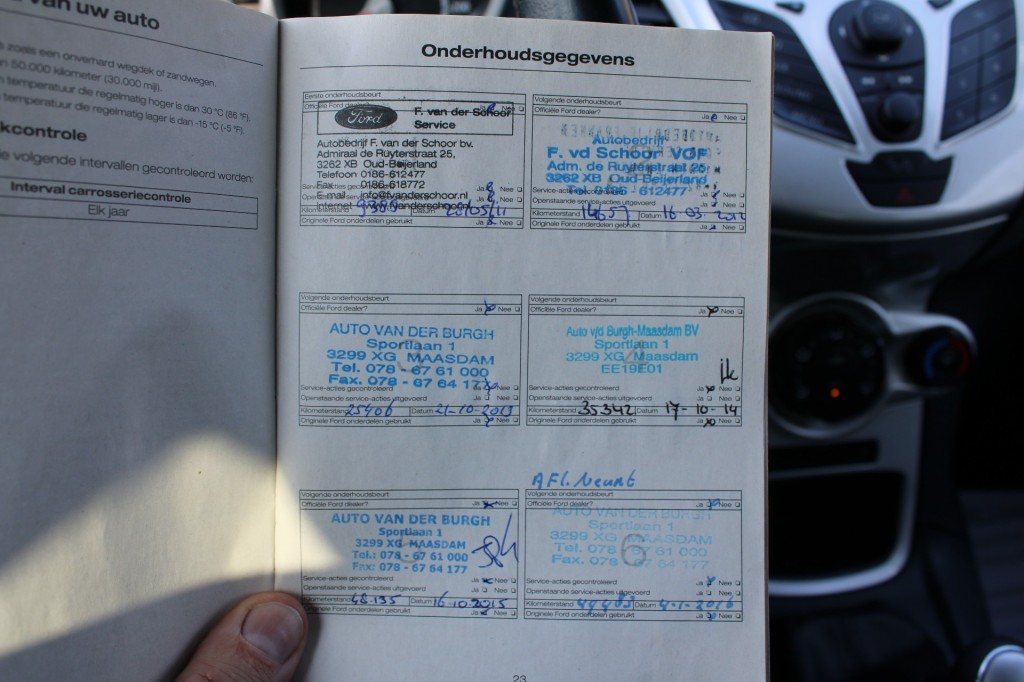 van uw auto
zoals een onverhard wegdek of zandwegen.
50.000 kilometer (30.000 mijl).
temperatuur die regelmatig hoger is dan 30 °C (86 °F).
temperatuur die regelmatig lager is dan -15 °C (-5 °F).
kcontrole
volgende intervallen gecontroleerd worden:
Interval carrosseriecontrole
Elk jaar
Onderhoudsgegevens
Eerste onderhoudsbeurt
Officiële Ford dealer? Ja Nee
Ford
F. van der Schoor
Service
Autobedrijf F. van der Schoor bv.
Admiraal de Ruyterstraat 25,
3262 XB Oud-Beijerland
Telefoon 0186-612477
Fax 0186-618772
Service-acties gecontroleerd Ja Nee
E-mail info@fvanderschoor.nl
Openstaande service-acties uitgevoerd Ja Nee
Internet
Kilometerstand Datum
Originele Ford onderdelen gebruikt Ja Nee
Volgende onderhoudsbeurt
Officiële Ford dealer? Ja Nee
Autobedrijf
F. vd Schoor VOF
Adm. de Ruyterstraat 25
3262 XB Oud-Beijerland
Tel. 0186 - 612477
Service-acties gecontroleerd Ja Nee
Openstaande service-acties uitgevoerd Ja Nee
Kilometerstand 14657 Datum 16-03-2012
Originele Ford onderdelen gebruikt Ja Nee
Volgende onderhoudsbeurt
Officiële Ford dealer? Ja Nee
AUTO VAN DER BURGH
Sportlaan 1
3299 XG MAASDAM
Tel. 078 - 67 61 000
Fax. 078 - 67 64 177
Service-acties gecontroleerd Ja Nee
Openstaande service-acties uitgevoerd Ja Nee
Kilometerstand 25406 Datum 21-10-2013
Originele Ford onderdelen gebruikt Ja Nee
Volgende onderhoudsbeurt
Officiële Ford dealer? Ja Nee
Auto v/d Burgh-Maasdam BV
Sportlaan 1
3299 XG Maasdam
EE19E01
Service-acties gecontroleerd Ja Nee
Openstaande service-acties uitgevoerd Ja Nee
Kilometerstand 35342 Datum 17-10-14
Originele Ford onderdelen gebruikt Ja Nee
Volgende onderhoudsbeurt
Officiële Ford dealer? Ja Nee
AUTO VAN DER BURGH
Sportlaan 1
3299 XG MAASDAM
Tel.: 078 - 67 61 000
Fax: 078 - 67 64 177
Service-acties gecontroleerd Ja Nee
Openstaande service-acties uitgevoerd Ja Nee
Kilometerstand 48.135 Datum 16.10.2015
Originele Ford onderdelen gebruikt Ja Nee
Afl. beurt
Volgende onderhoudsbeurt
Officiële Ford dealer? Ja Nee
AUTO VAN DER BURGH
Sportlaan 1
3299 XG MAASDAM
6
Tel. 078 - 67 61 000
Fax. 078 - 67 64 177
Service-acties gecontroleerd Ja Nee
Openstaande service-acties uitgevoerd Ja Nee
Kilometerstand Datum 4-1-2016
Originele Ford onderdelen gebruikt Ja Nee
23